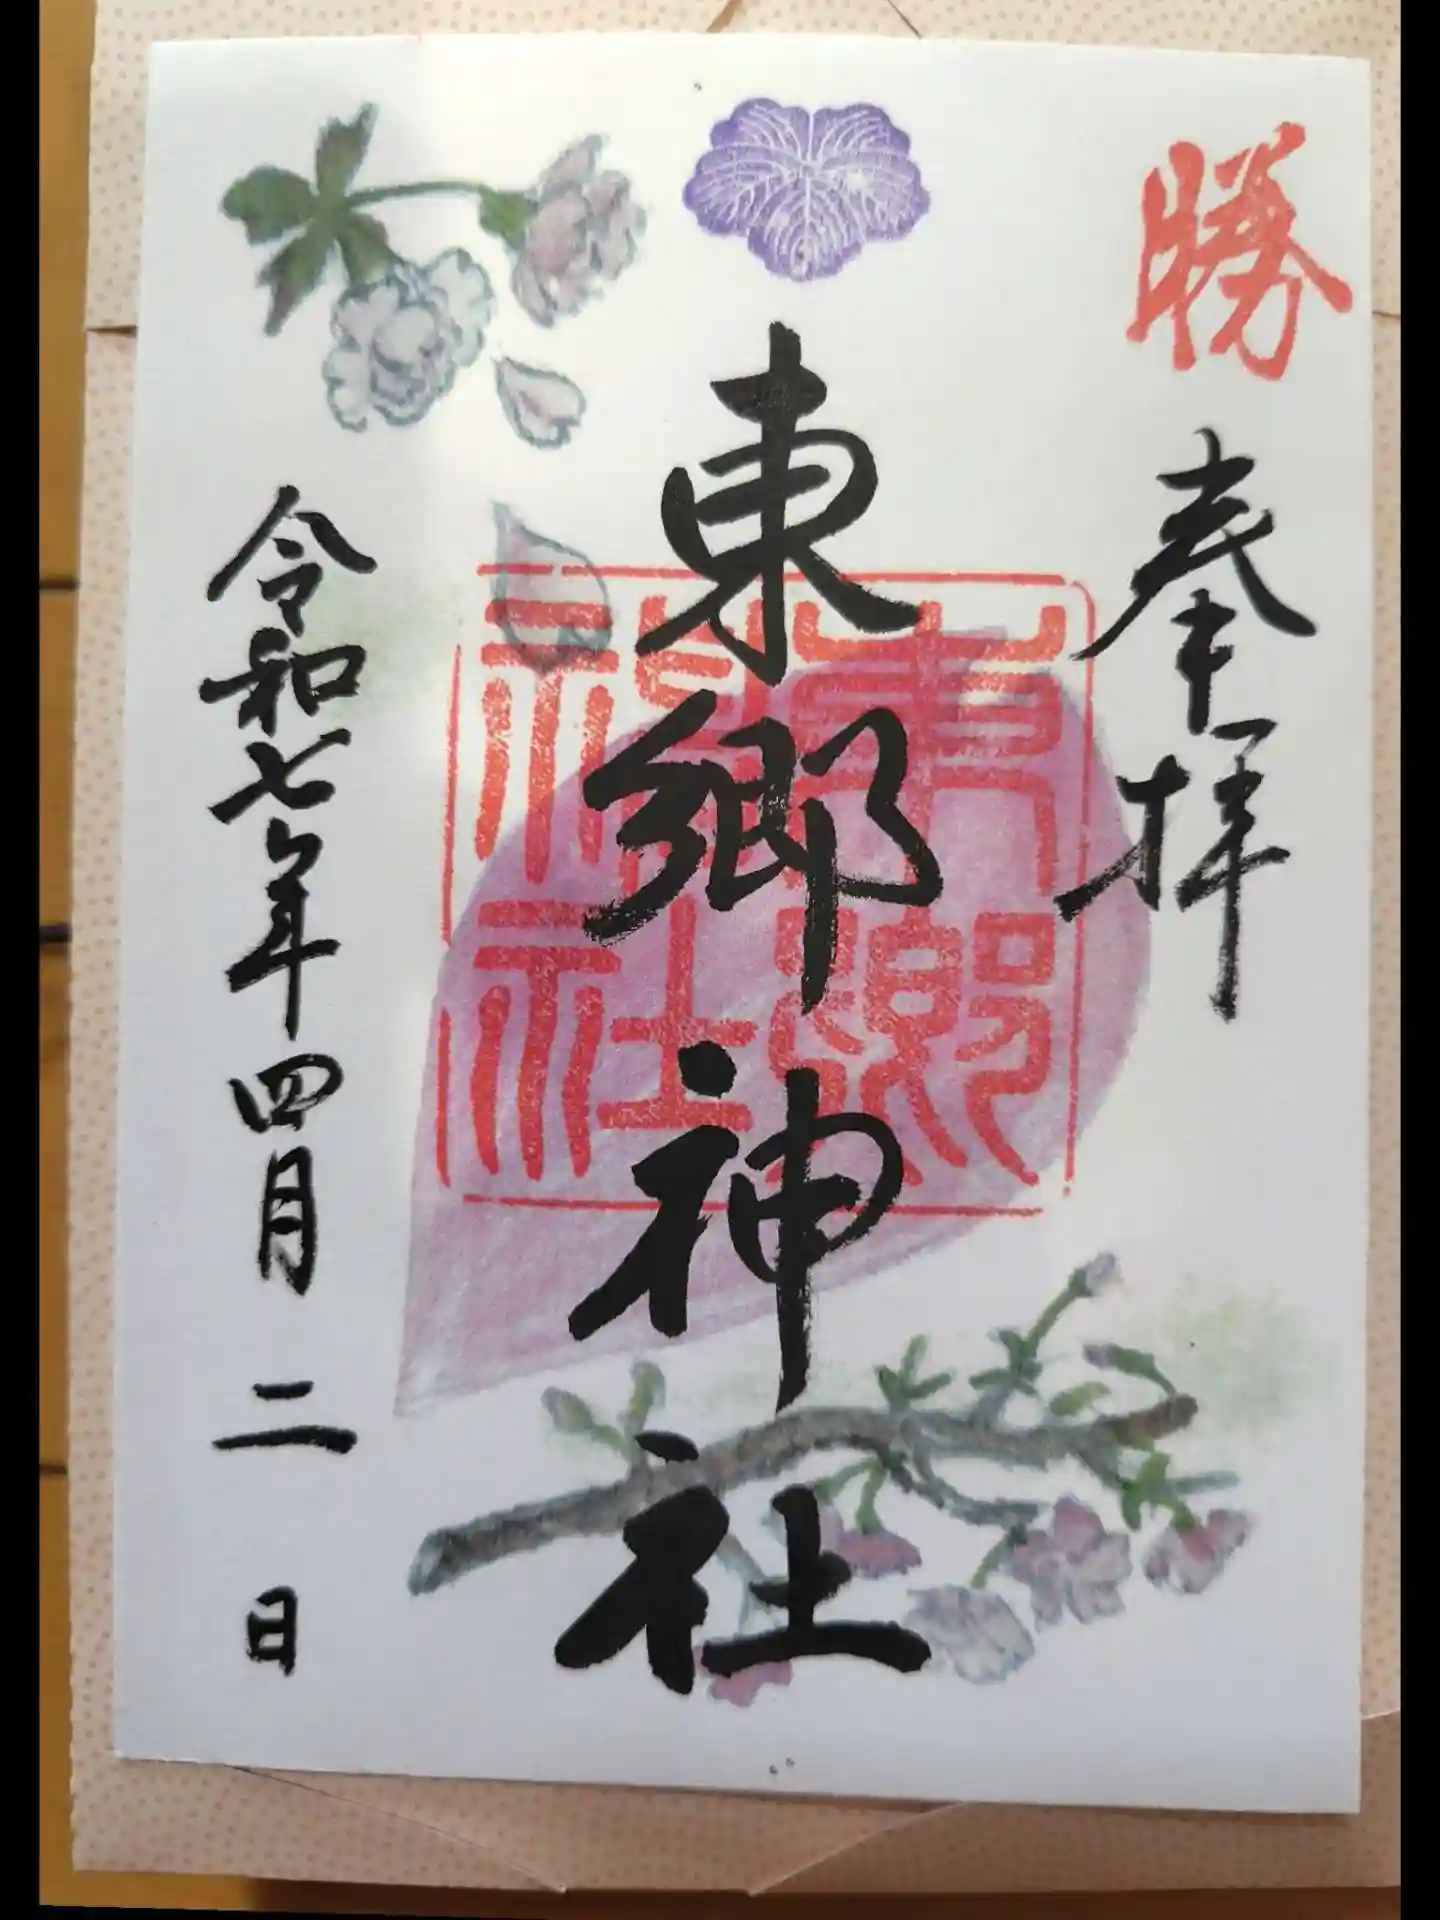 勝
奉拝
東郷神社
東郷
神社
令和七年四月二日